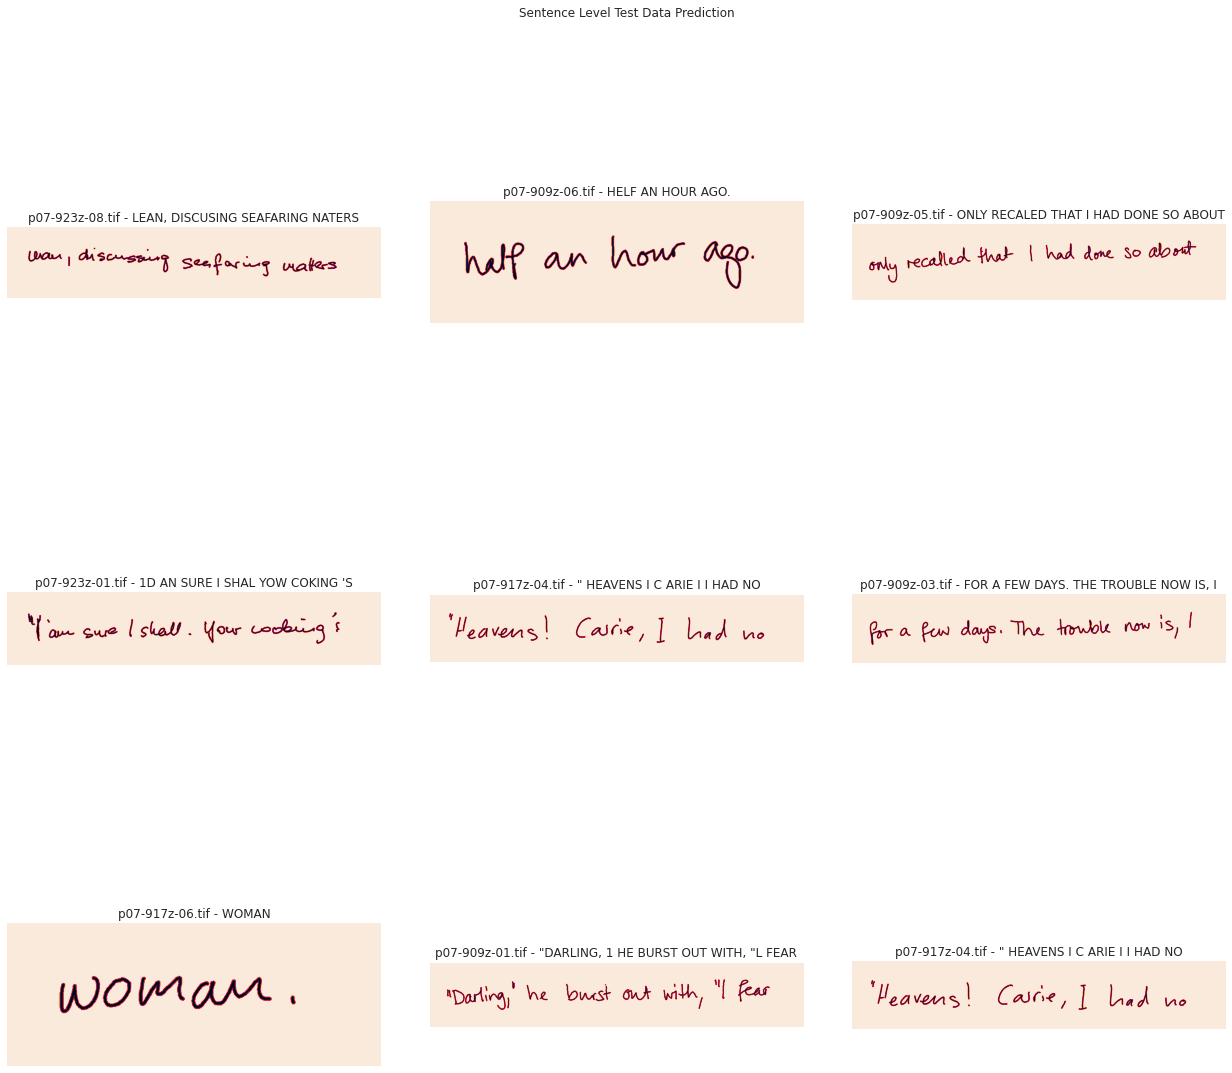 Sentence Level Test Data Prediction
p07-923z-08.tif - LEAN, DISCUSING SEAFARING NATERS
wean, discussing seafaring waters
p07-909z-06.tif - HELF AN HOUR AGO.
half an hour ago.
p07-909z-05.tif - ONLY RECALED THAT I HAD DONE SO ABOUT
only recalled that I had done so about
p07-923z-01.tif - 1D AN SURE I SHAL YOW COKING 'S
"I am sure I shall. Your cooking's
p07-917z-04.tif - " HEAVENS I C ARIE I I HAD NO
"Heavens! Carrie, I had no
p07-909z-03.tif - FOR A FEW DAYS. THE TROUBLE NOW IS, I
for a few days. The trouble now is, I
p07-917z-06.tif - WOMAN
woman.
p07-909z-01.tif - "DARLING, 1 HE BURST OUT WITH, "L FEAR
"Darling," he burst out with, "I fear
p07-917z-04.tif - " HEAVENS I C ARIE I I HAD NO
"Heavens! Carrie, I had no